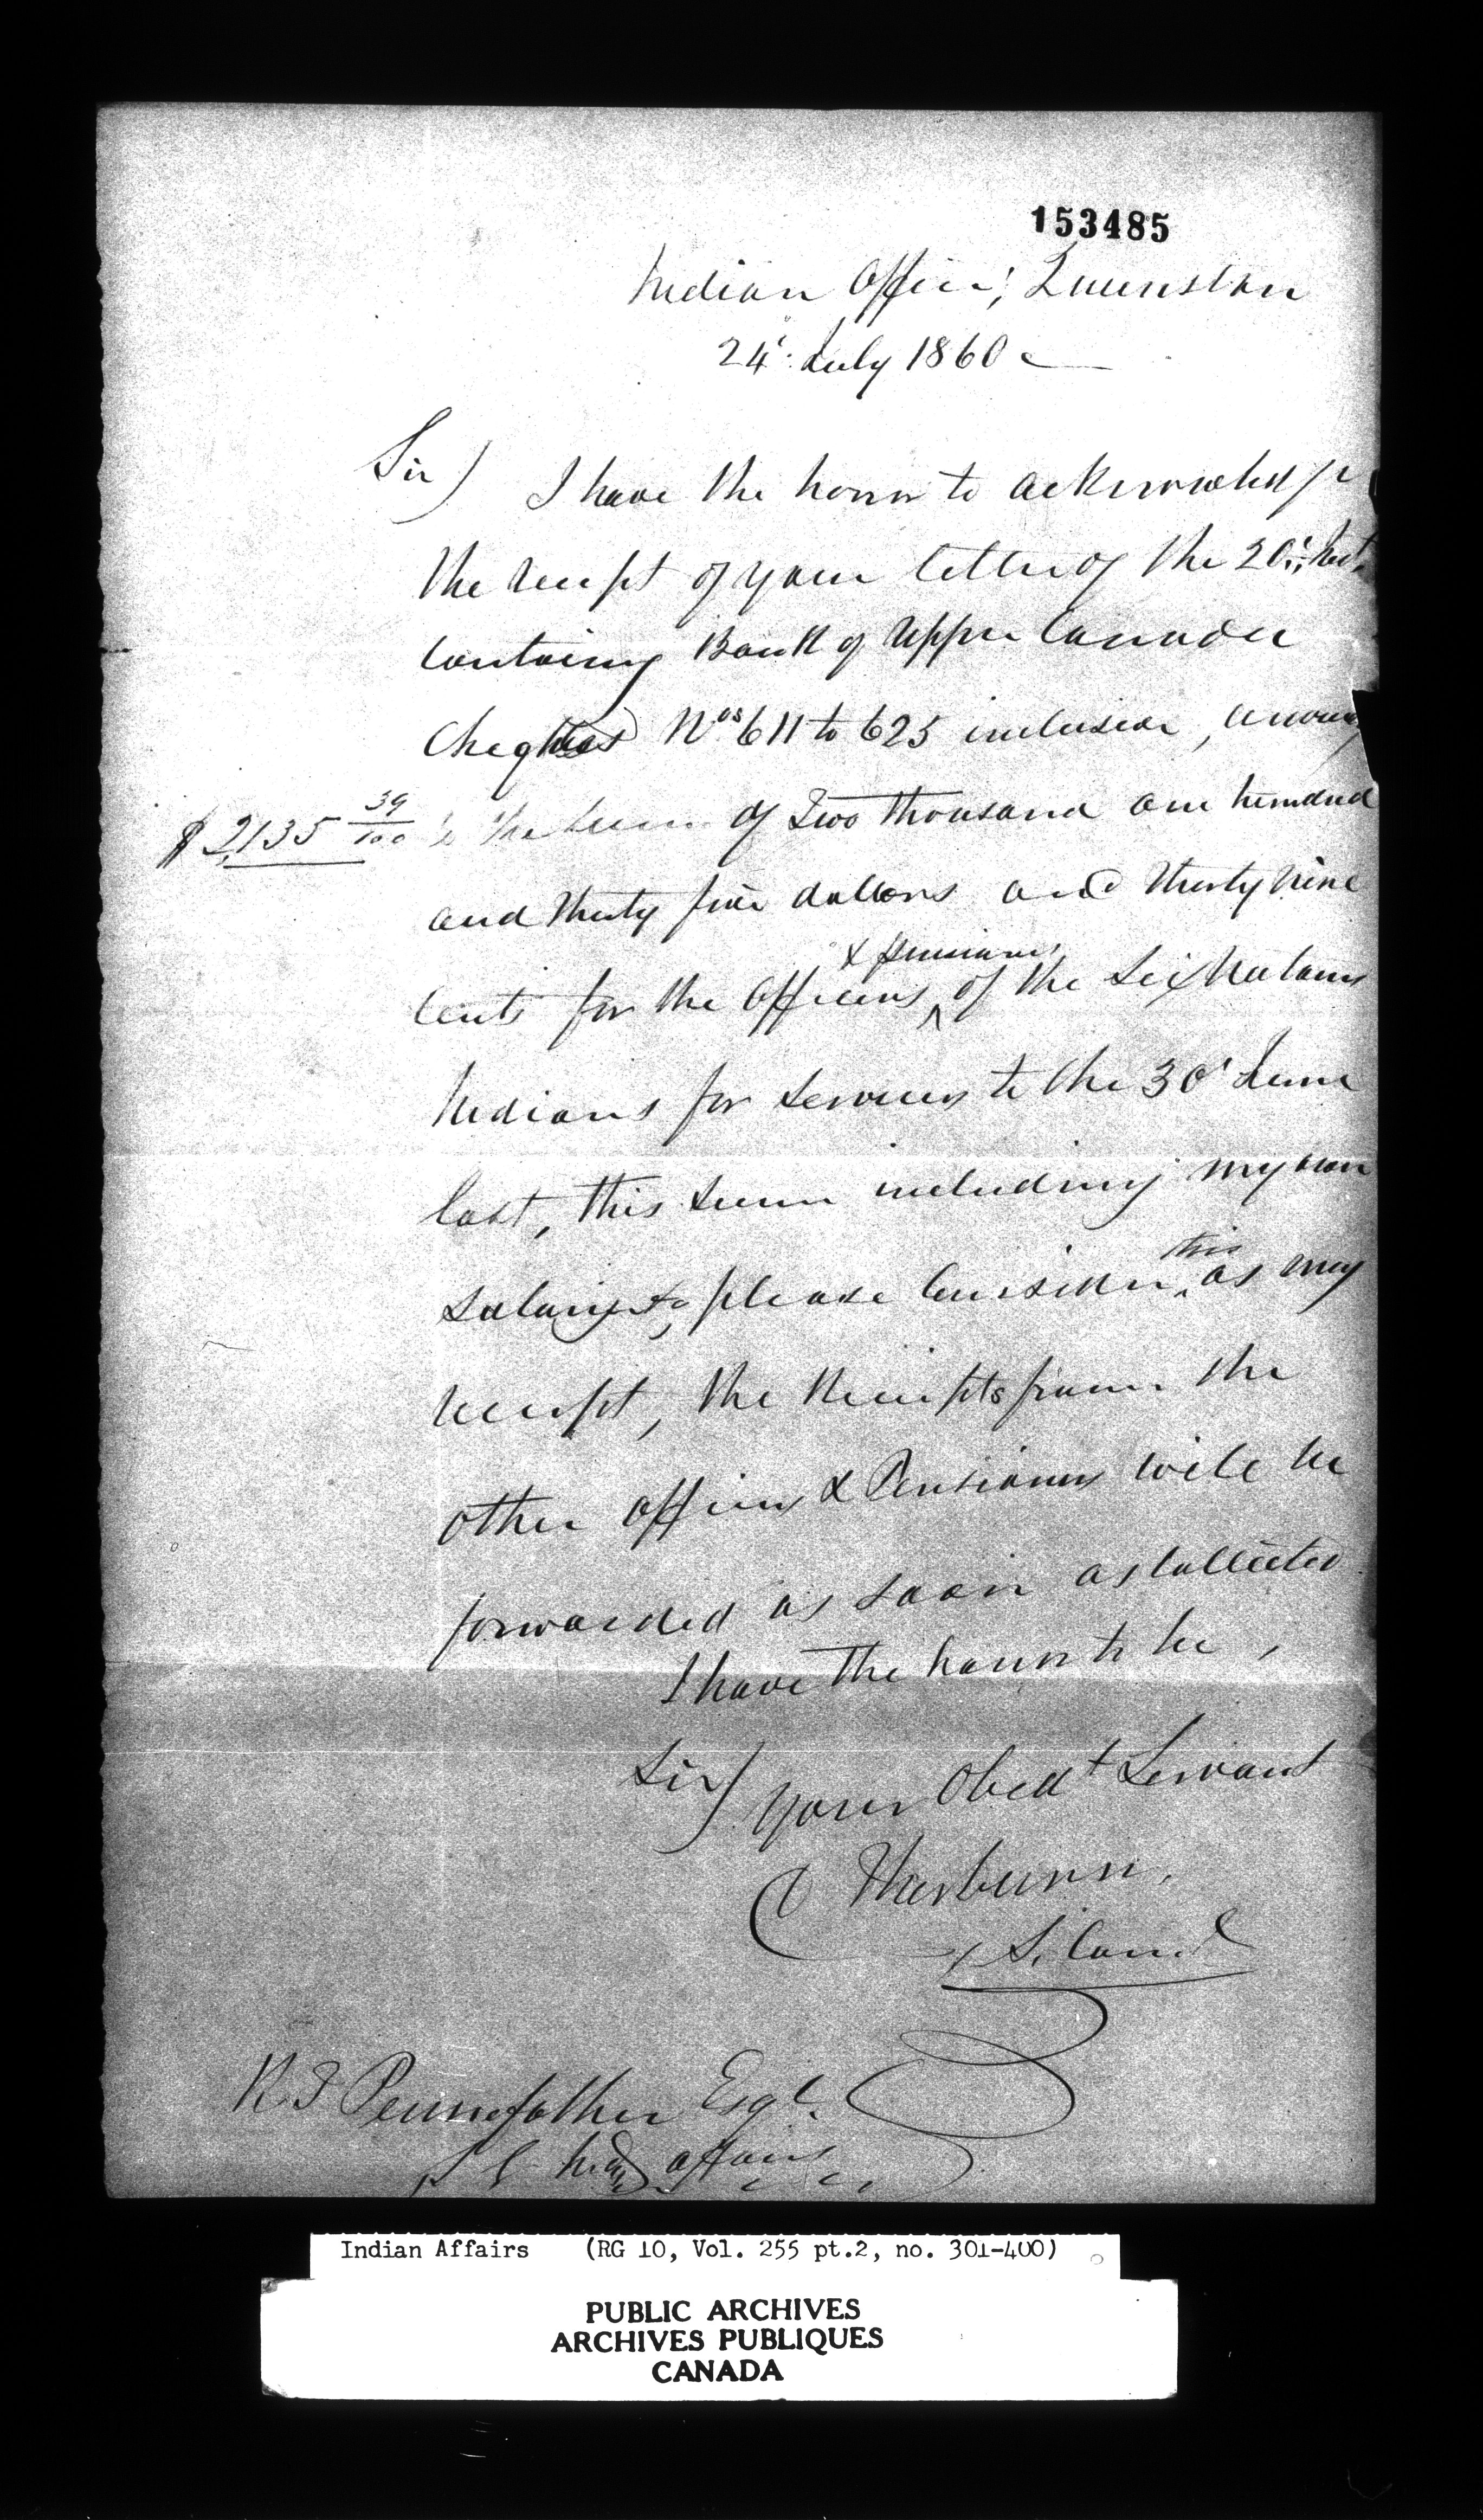 153485
Indian Office, Queenston
24': July 1860
Sir) I have the honor to acknowledge
the receipt of your letter of the 20th: Inst.
containing Bank of Upper Canada
Cheques Nos 611 to 625 inclusive,
$ 2,135 39/100 to the sum of Two thousand one hundred
and thirty five dollars and thirty nine
& pensioners
Cents for the Officers ^ of the Six Nations
Indians for services to the 30' June
last, this sum including my own
this
salary &c, please consider ^ as my
receipt, the Receipts from the
other officers & Pensioners will be
forwarded as soon as collected
I have the honor to be,
Sir) your Obedt Servant
Thorburn,
S. Comr
R T Pennefather Esqr.
S G Indn affairs
Indian Affairs (RG 10, Vol. 255 pt.2, no. 301-400)
PUBLIC ARCHIVES
ARCHIVES PUBLIQUES
CANADA